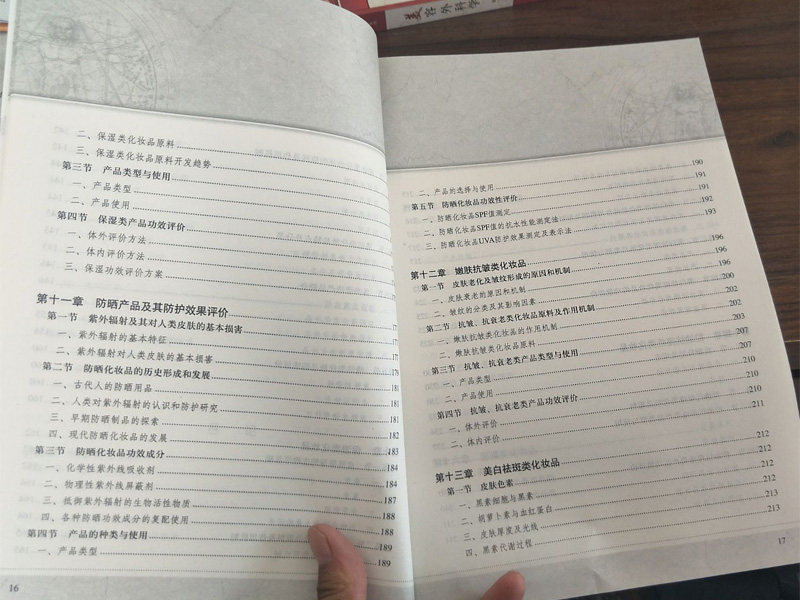 美容外科学
二、保湿类化妆品原料
三、保湿类化妆品原料开发趋势
第三节 产品类型与使用
一、产品类型
二、产品使用
第四节 保湿类产品功效评价
一、体外评价方法
二、体内评价方法
三、保湿功效评价方案
第十一章 防晒产品及其防护效果评价
第一节 紫外辐射及其对人类皮肤的基本损害
一、紫外辐射的基本特征
二、紫外辐射对人类皮肤的基本损害
第二节 防晒化妆品的历史形成和发展
一、古代人的防晒用品
二、人类对紫外辐射的认识和防护研究
三、早期防晒制品的探索 181
四、现代防晒化妆品的发展 182
第三节 防晒化妆品功效成分 183
一、化学性紫外线吸收剂 184
二、物理性紫外线屏蔽剂 184
三、抵御紫外辐射的生物活性物质 187
四、各种防晒功效成分的复配使用 188
第四节 产品的种类与使用 188
一、产品类型 189
189
16
二、产品的选择与使用 190
第五节 防晒化妆品功效性评价 191
一、防晒化妆品SPF值测定 191
二、防晒化妆品SPF值的抗水性能测定法 192
三、防晒化妆品UVA防护效果测定及表示法 193
第十二章 嫩肤抗皱类化妆品 196
第一节 皮肤老化及皱纹形成的原因和机制 196
一、皮肤衰老的原因和机制 196
二、皱纹的分类及其影响因素 200
第二节 抗皱、抗衰老类化妆品原料及作用机制 202
一、嫩肤抗皱类化妆品的作用机制 202
二、嫩肤抗皱类化妆品原料 203
第三节 抗皱、抗衰老类产品类型与使用 207
一、产品类型 207
二、产品使用 210
第四节 抗皱、抗衰老类产品功效评价 210
一、体外评价 211
二、体内评价
第十三章 美白祛斑类化妆品 212
第一节 皮肤色素 212
一、黑素细胞与黑素 212
二、胡萝卜素与血红蛋白 212
三、皮肤厚度及光线 213
四、黑素代谢过程 213
17